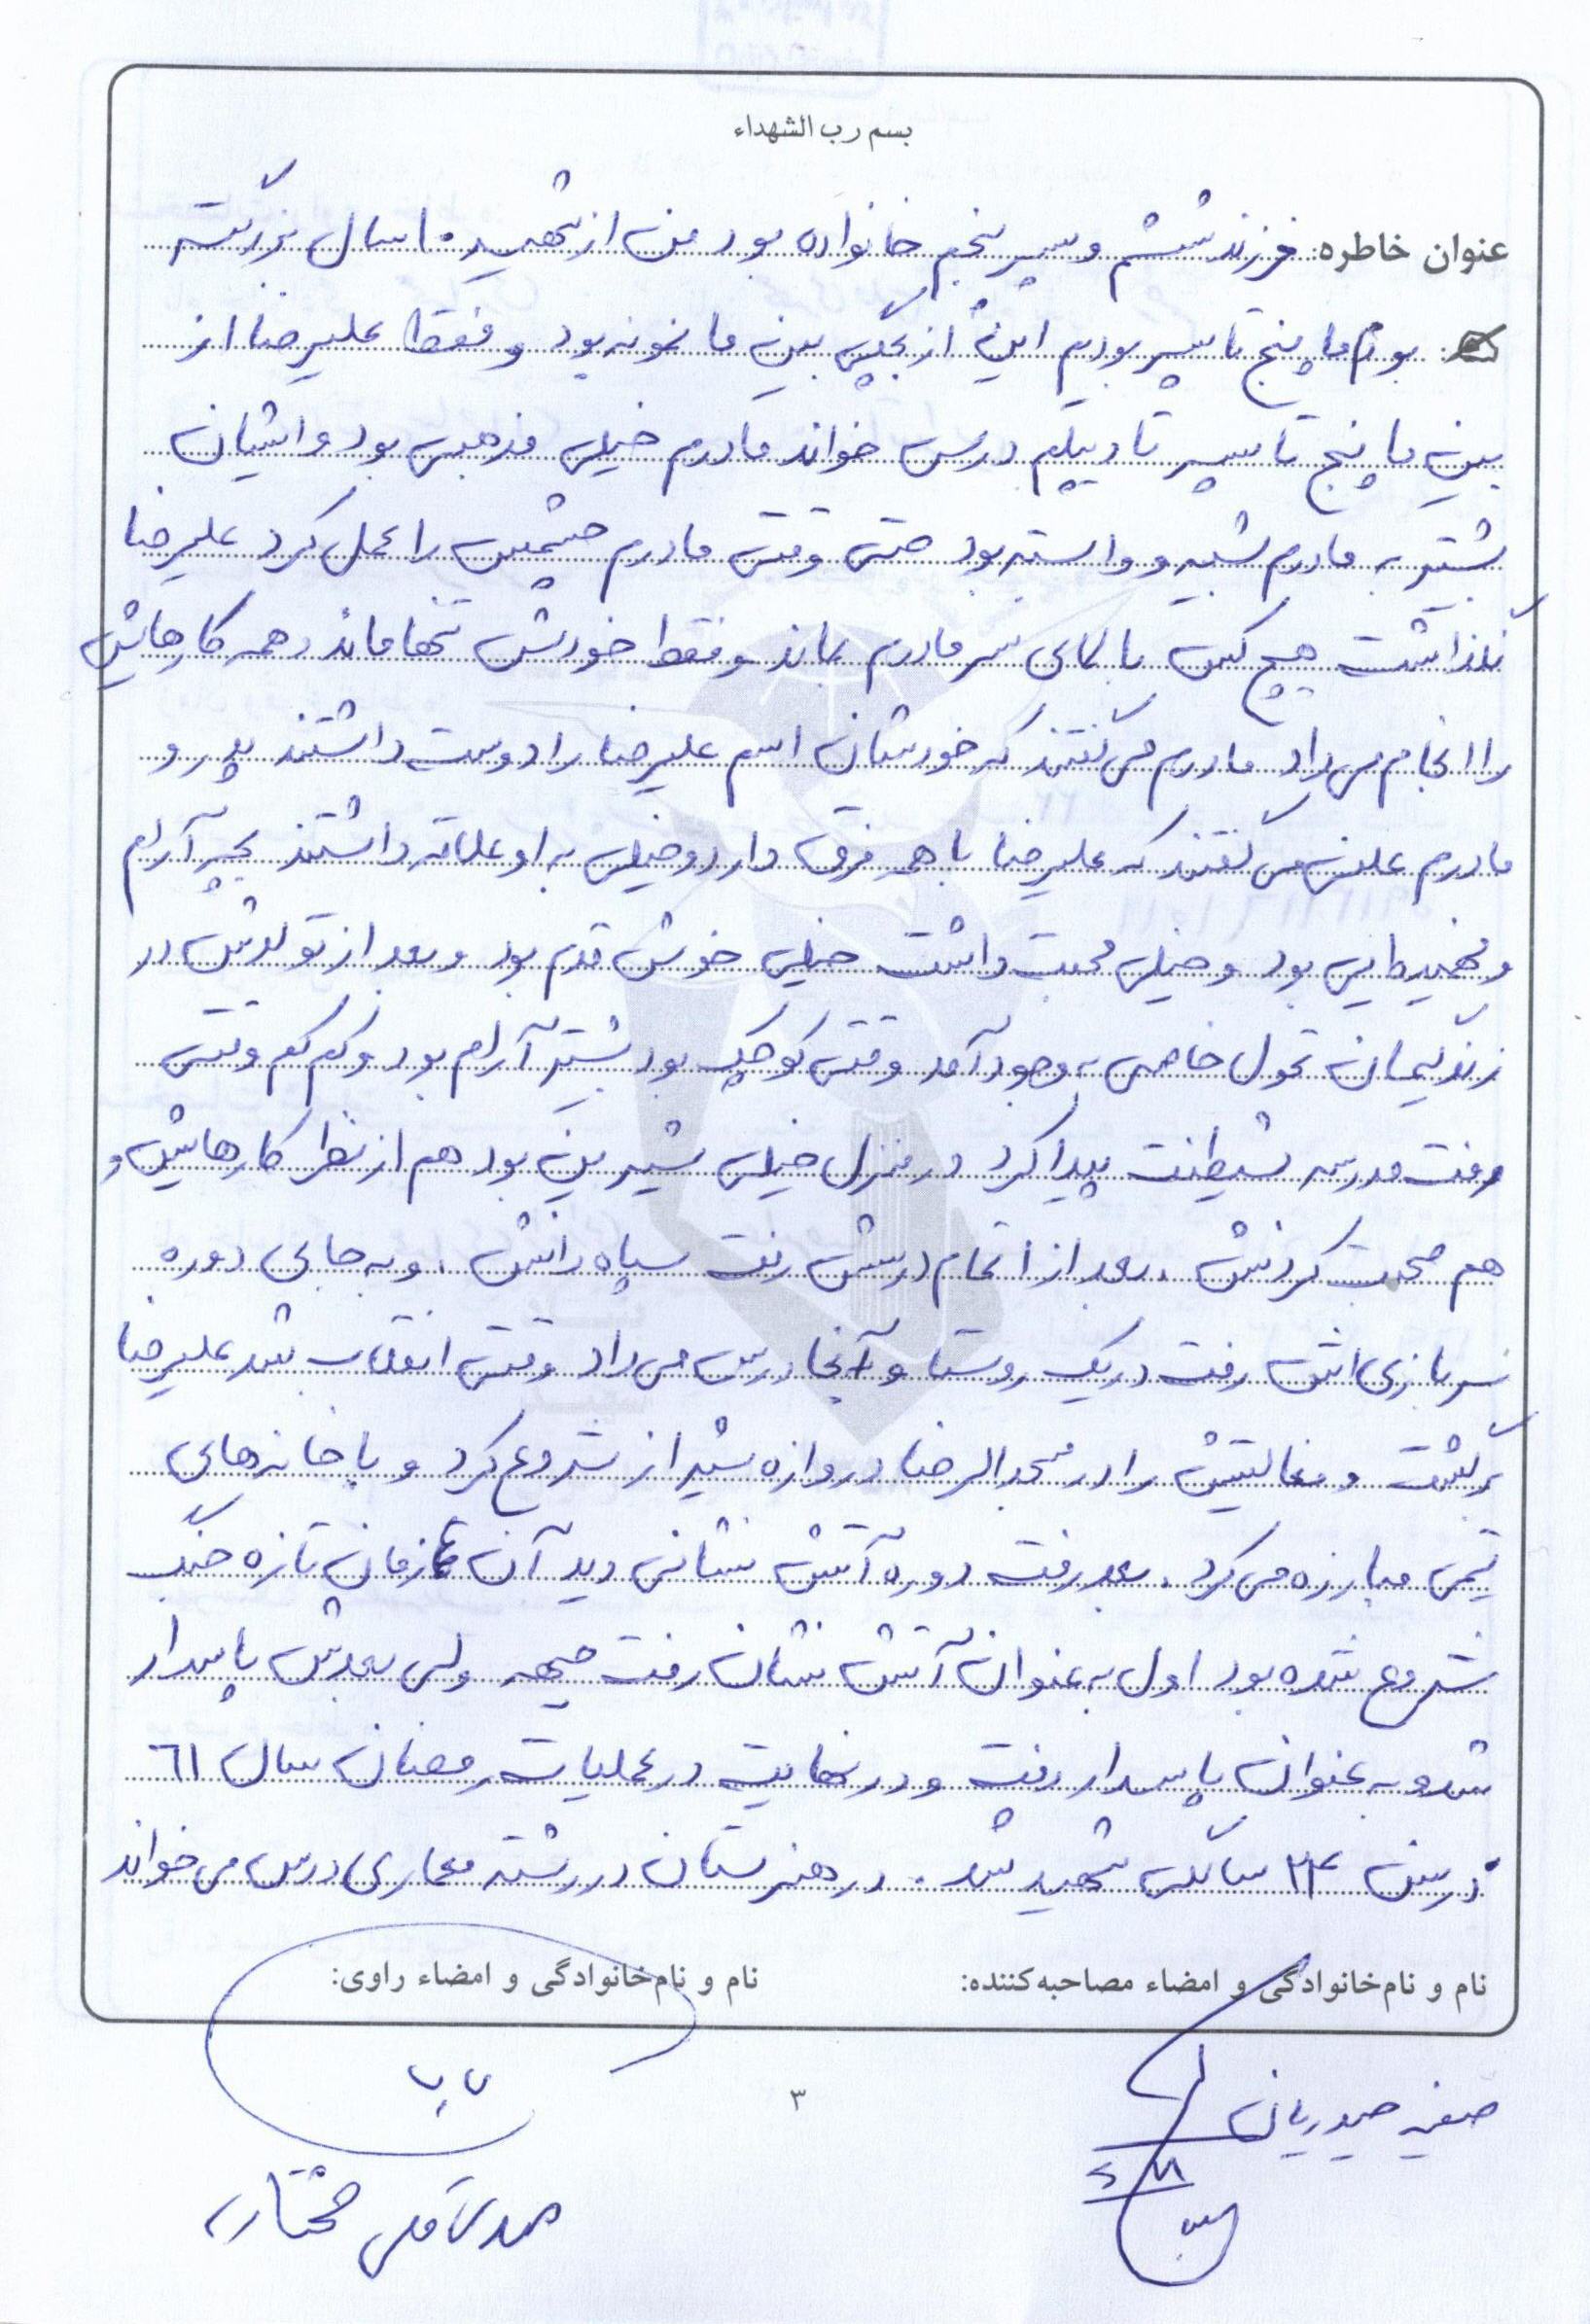 بسم رب الشهداء
عنوان خاطره: فرزند ششم و پسر پنجم خانواده بود من از شهید ۱۰ سال بزرگتر
بودم ما پنج تا پسر بودیم ایشان از بچگی بین ما نمونه بود و فقط علیرضا از
بین ما پنج تا پسر تا دیپلم درس خواند مادرم خیلی مذهبی بود و ایشان
بیشتر به مادرم شبیه و وابسته بود حتی وقتی مادرم چشمش را عمل کرد علیرضا
نگذاشت هیچ کس بالای سر مادرم بماند و فقط خودش تنها ماند و همه کارهایش
را انجام می داد مادرم می گفتند که خودشان اسم علیرضا را دوست داشتند پدر و
مادرم علنی می گفتند که علیرضا با همه فرق دارد و خیلی به او علاقه داشتند بچه آرام
و فهمیده‌ایی بود و خیلی محبت داشت خیلی خوش قدم بود و بعد از تولدش در
زندگیمان تحول خاصی به وجود آمد وقتی کوچک بود بیشتر آرام بود و کم کم وقتی
رفت مدرسه شیطنت پیدا کرد در منزل خیلی شیرین بود هم از نظر کارهایش و
هم صحبت کردنش. بعد از اتمام درسش رفت سپاه دانش. و به جای دوره
سربازی اش رفت در یک روستا و آنجا درس می داد وقتی انقلاب شد علیرضا
برگشت و فعالیتش را در مسجد الرضا دروازه شیراز شروع کرد و با خانه های
تیمی مبارزه می کرد. بعد رفت دوره آتش نشانی دید آن زمان تازه جنگ
شروع شده بود اول به عنوان آتش نشان رفت جبهه ولی بعدش پاسدار
شد و به عنوان پاسدار رفت و در نهایت در عملیات رمضان سال ٦١
در سن ۲۴ سالگی شهید شد. در هنرستان در رشته معماری درس می خواند
نام و نام‌خانوادگی و امضاء مصاحبه‌کننده: نام و نام‌خانوادگی و امضاء راوی:
صفیه حیدریان
۳
مختاری